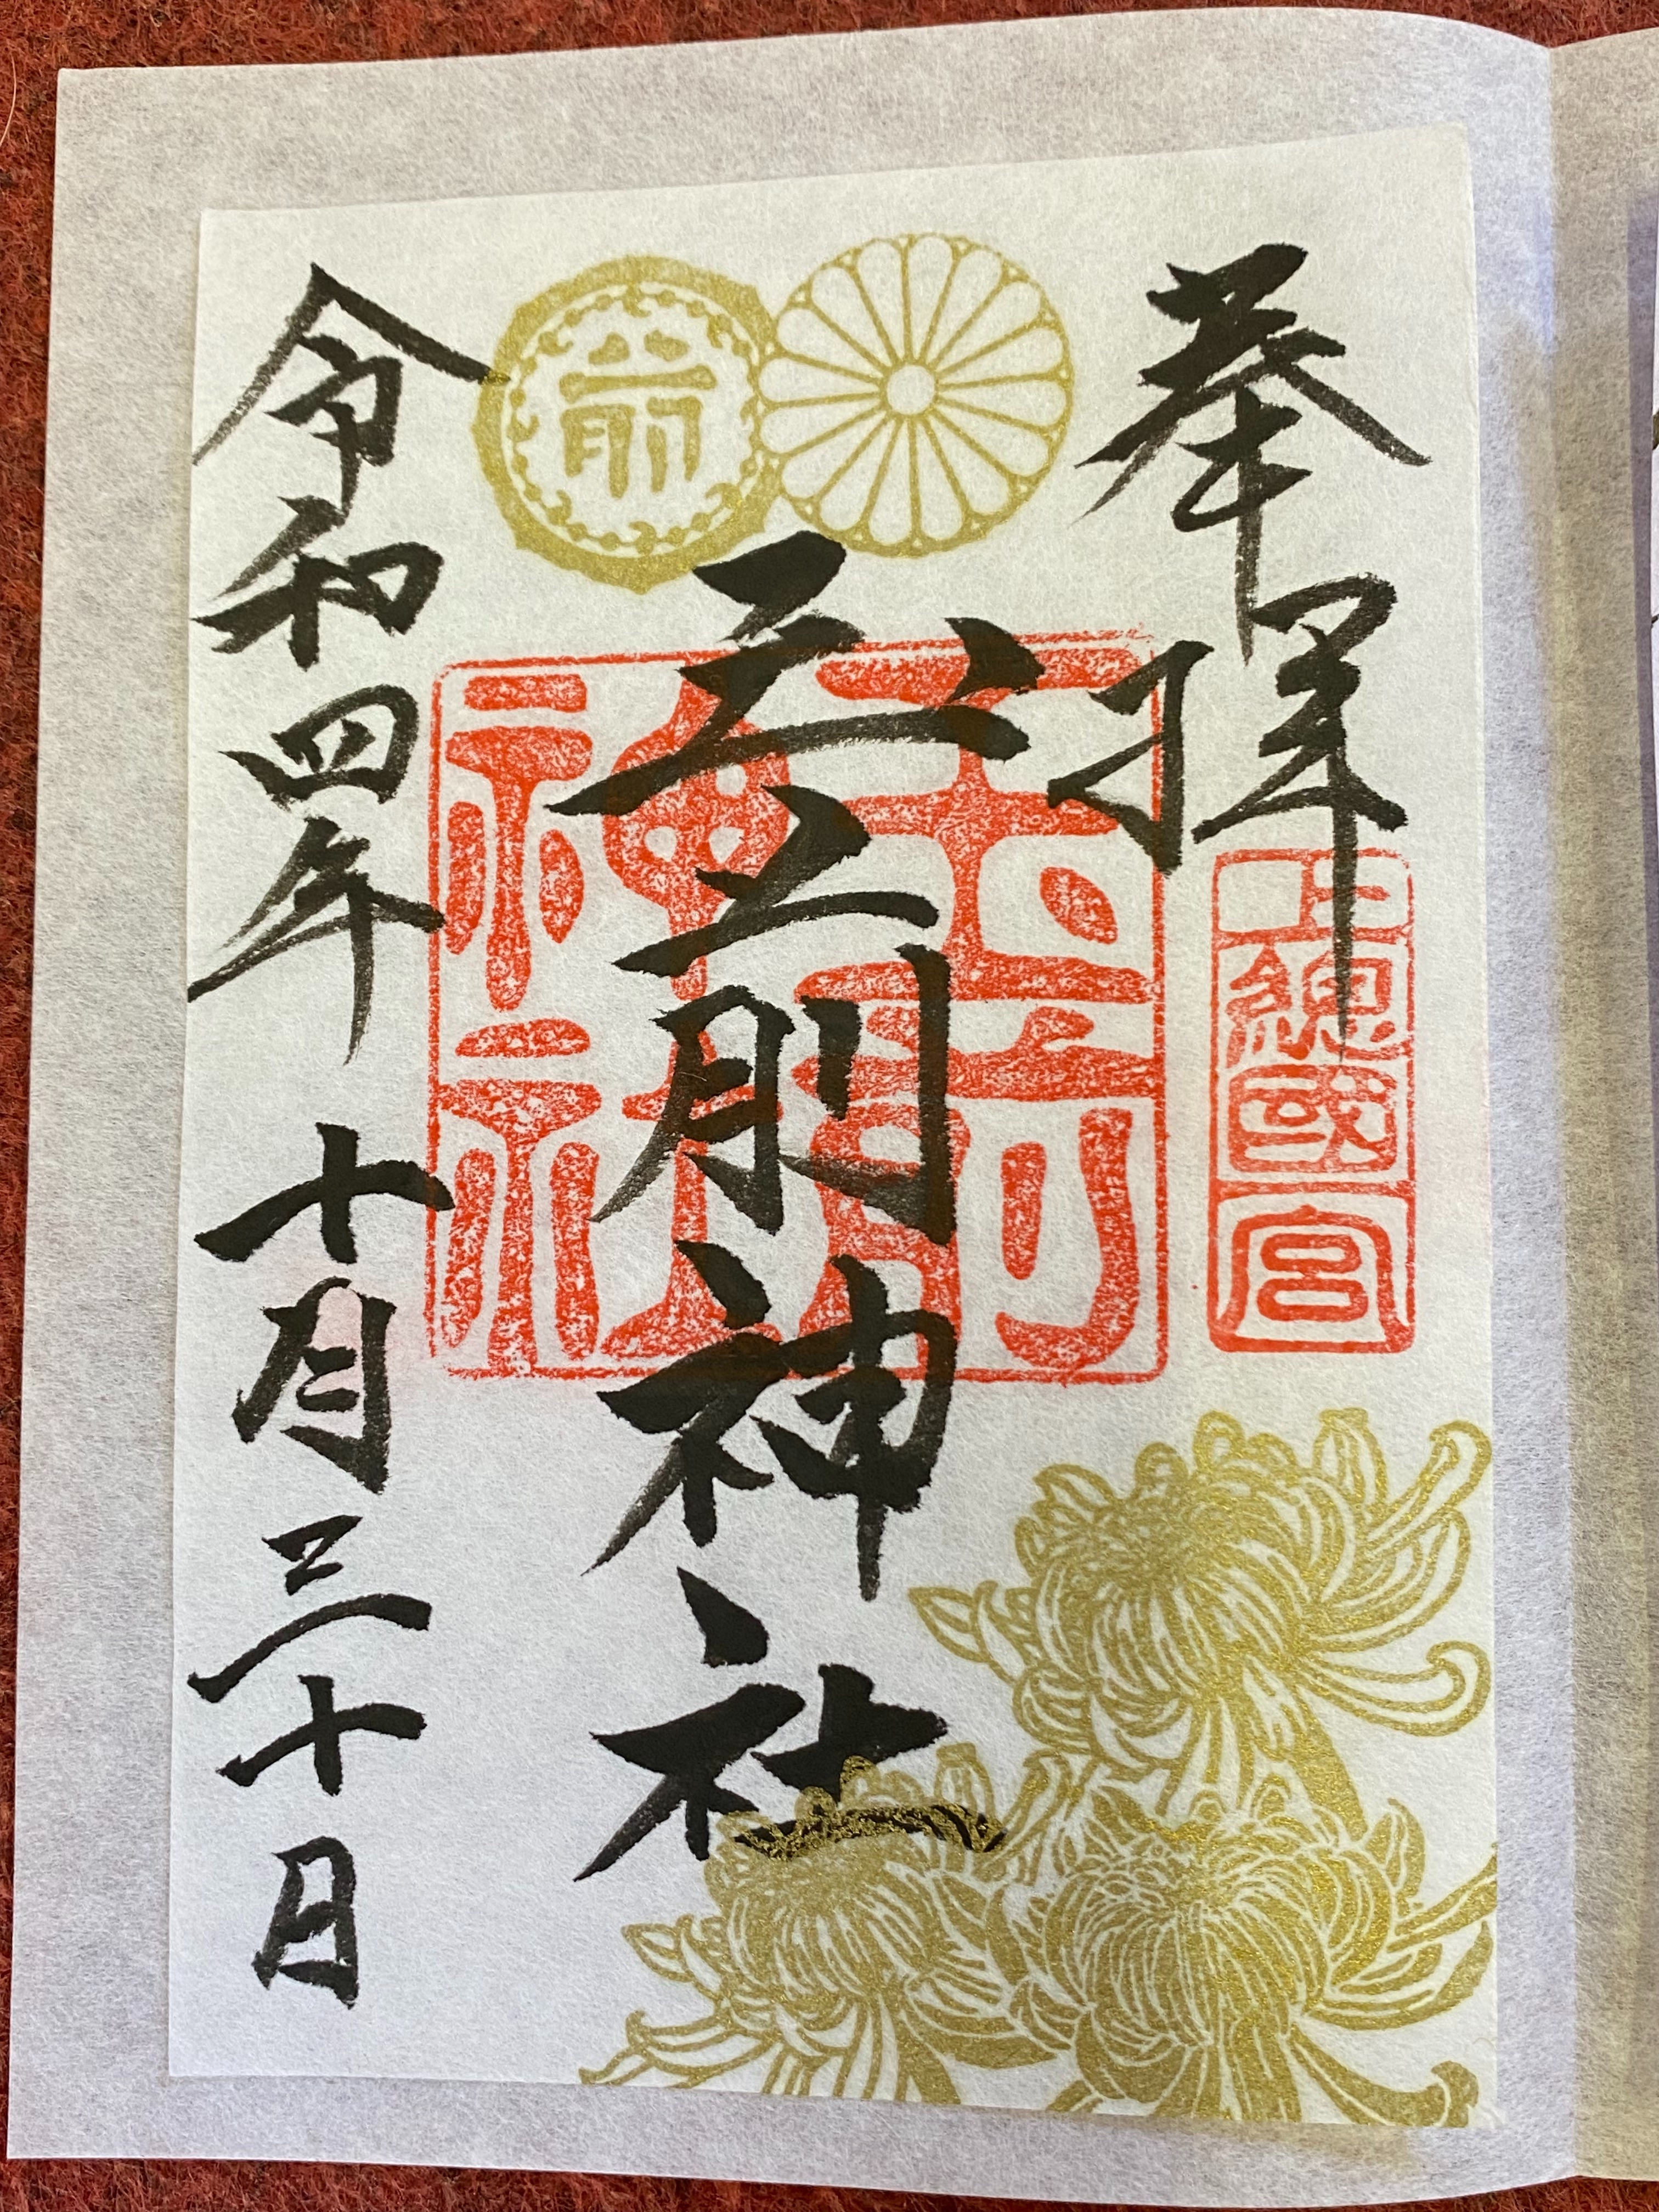 奉拝
上總國一宮
前
玉前神社
玉前神社
令和四年十月三十日